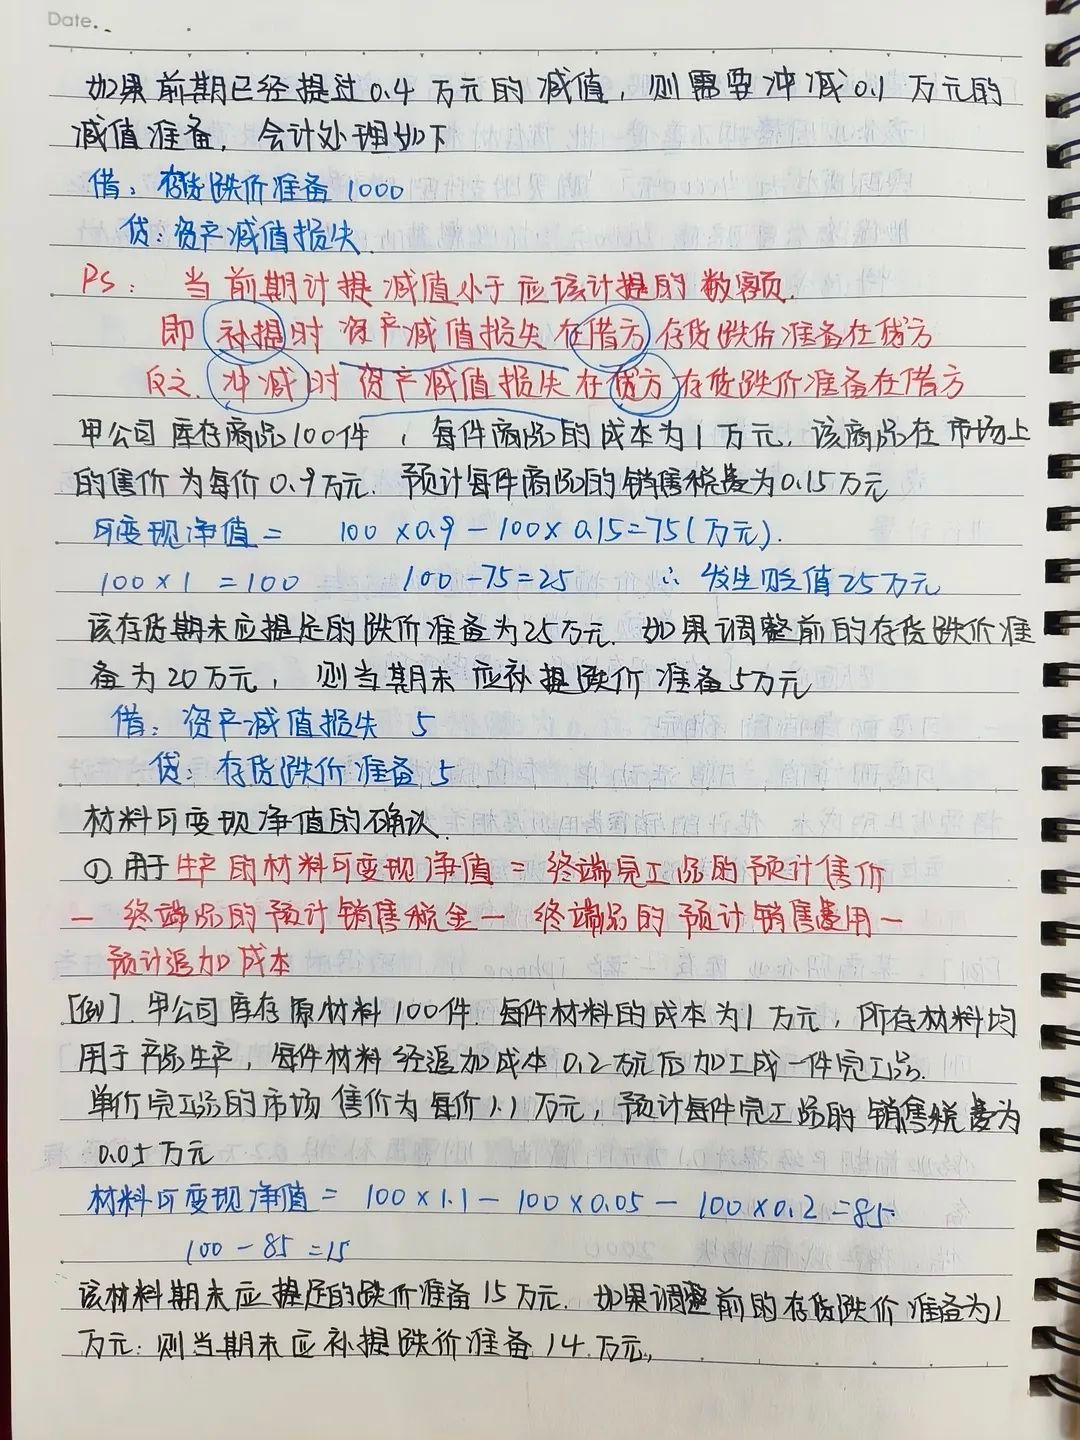 Date.
如果前期已经提过0.4万元的减值，则需要冲减0.1万元的
减值准备，会计处理如下
借：存货跌价准备1000
贷：资产减值损失
PS：当前期计提减值小于应该计提的数额.
即补提时资产减值损失在借方存货跌价准备在贷方
反之.冲减时资产减值损失在贷方存货跌价准备在借方
甲公司库存商品100件，每件商品的成本为1万元，该商品在市场上
的售价为每价0.9万元.预计每件商品的销售税费为0.15万元
可变现净值=100×0.9-100×0.15=75(万元).
100×1=100 100-75=25 ∴发生贬值25万元
该存货期末应提足的跌价准备为25万元.如果调整前的存货跌价准
备为20万元，则当期末应补提跌价准备5万元
借：资产减值损失 5
贷：存货跌价准备 5
材料可变现净值的确认.
①.用于生产的材料可变现净值=终端完工品的预计售价
-终端品的预计销售税金-终端品的预计销售费用-
预计追加成本
[例].甲公司库存原材料100件.每件材料的成本为1万元，所存材料均
用于产品生产，每件材料经追加成本0.2万元后加工成一件完工品.
单价完工品的市场售价为每价1.1万元，预计每件完工品的销售税费为
0.05万元
材料可变现净值=100×1.1-100×0.05-100×0.2=85
100-85=15
该材料期末应提足的跌价准备15万元.如果调整前的存货跌价准备为1
万元：则当期末应补提跌价准备14万元，